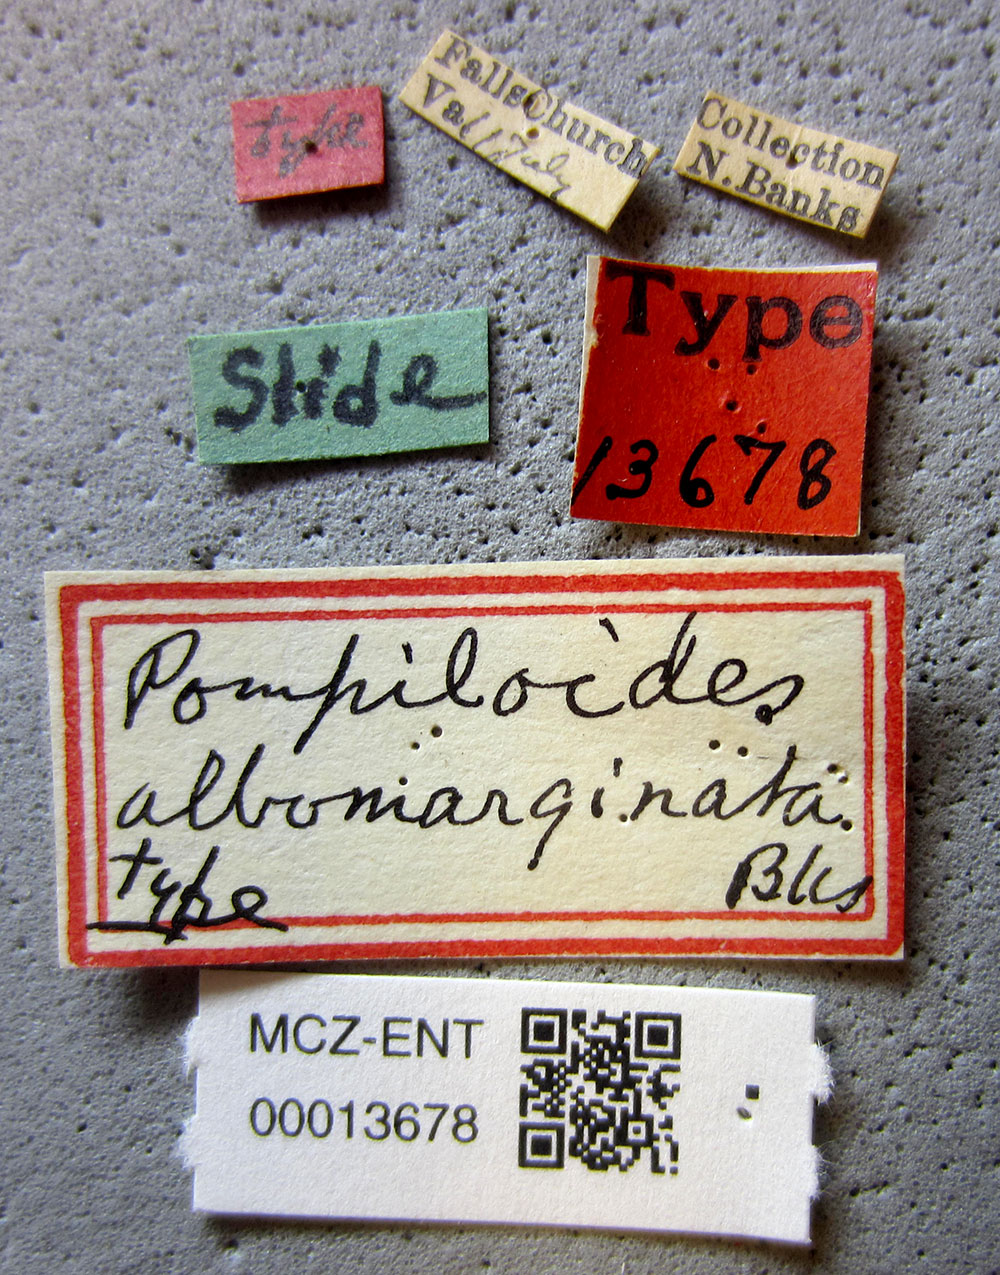 type
Falls Church
Va 11 July
Collection
N. Banks
Slide
Type
13678
Pompiloides
albomarginata.
type Bks
MCZ-ENT
00013678